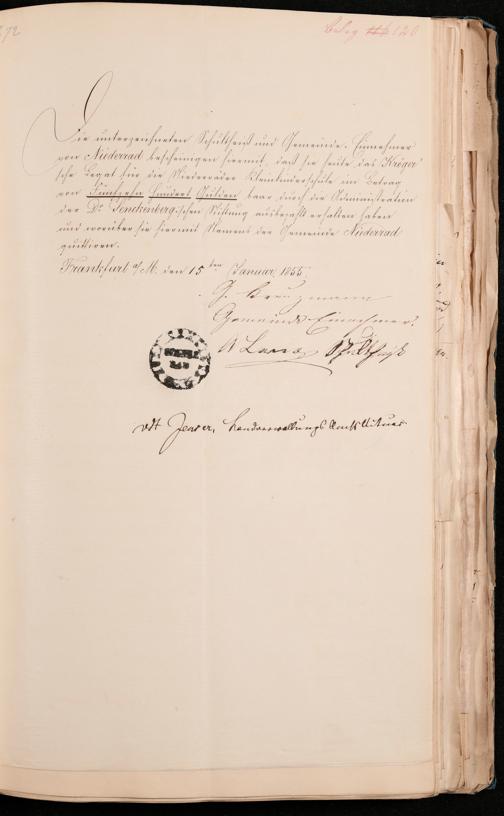 272
Beleg 120
Die unterzeichneten Schultheiß und Gemeinde-Einnehmer
von Niederrad bescheinigen hiermit, daß sie heute das Krüger'
sche Legat für die Niederräder Kleinkinderschule im Betrag
von Fünfzehn Hundert Gulden baar durch die Administration
der Dr. Senckenberg'schen Stiftung ausbezahlt erhalten haben
und worüber sie hiermit Namens der Gemeinde Niederrad
quittiren.
Frankfurt a/M. den 15ten Januar 1855
Gemeinde Einnehmer.
Schultheiß
vdt